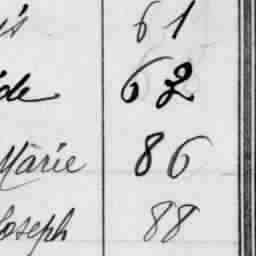 is 61
ide 62
Marie 86
Joseph 88